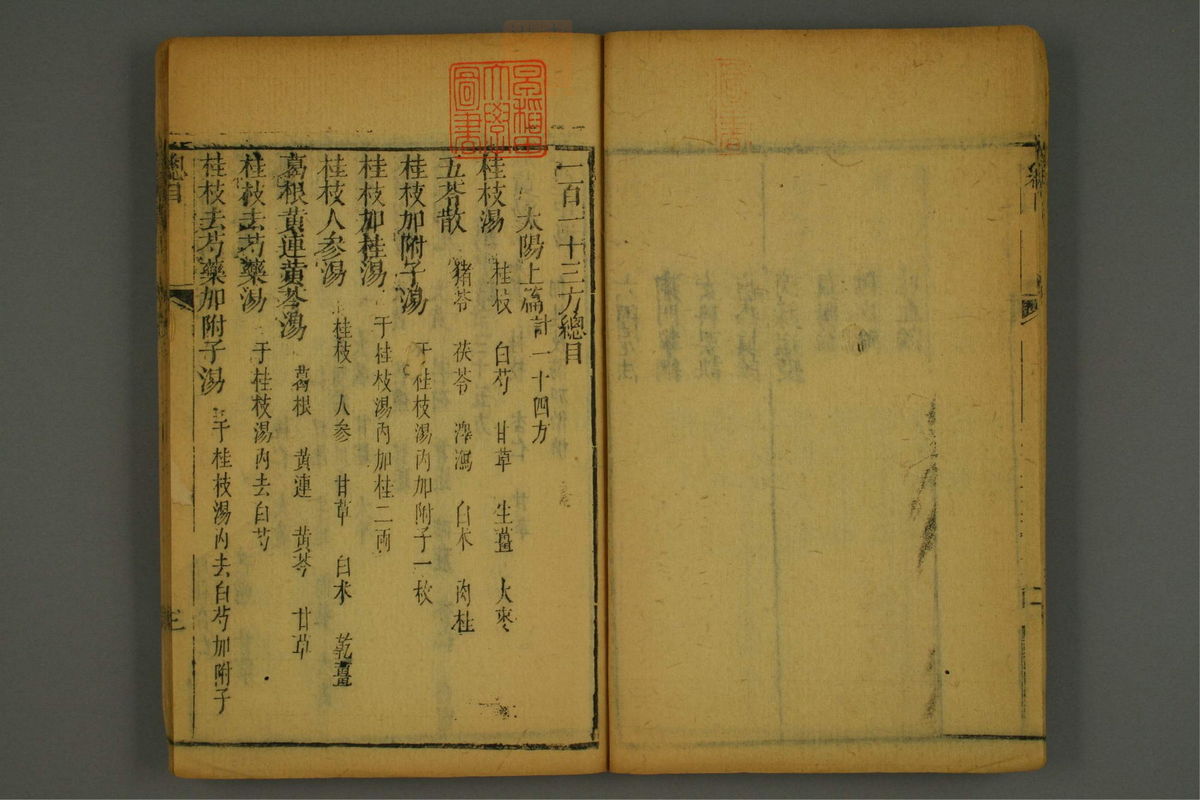 二
一百一十三方總目
太陽上篇計一十四方
桂枝湯 桂枝 白芍 甘草 生薑 大棗
五苓散 豬苓 茯苓 澤瀉 白朮 肉桂
桂枝加附子湯 于桂枝湯內加附子一枚
桂枝加桂湯 于桂枝湯內加桂二兩
桂枝人參湯 桂枝 人參 甘草 白朮 乾薑
葛根黃連黃芩湯 葛根 黃連 黃芩 甘草
桂枝去芍藥湯 于桂枝湯內去白芍
桂枝去芍藥加附子湯 于桂枝湯內去白芍加附子
總目
三
早稻田
大學
圖書